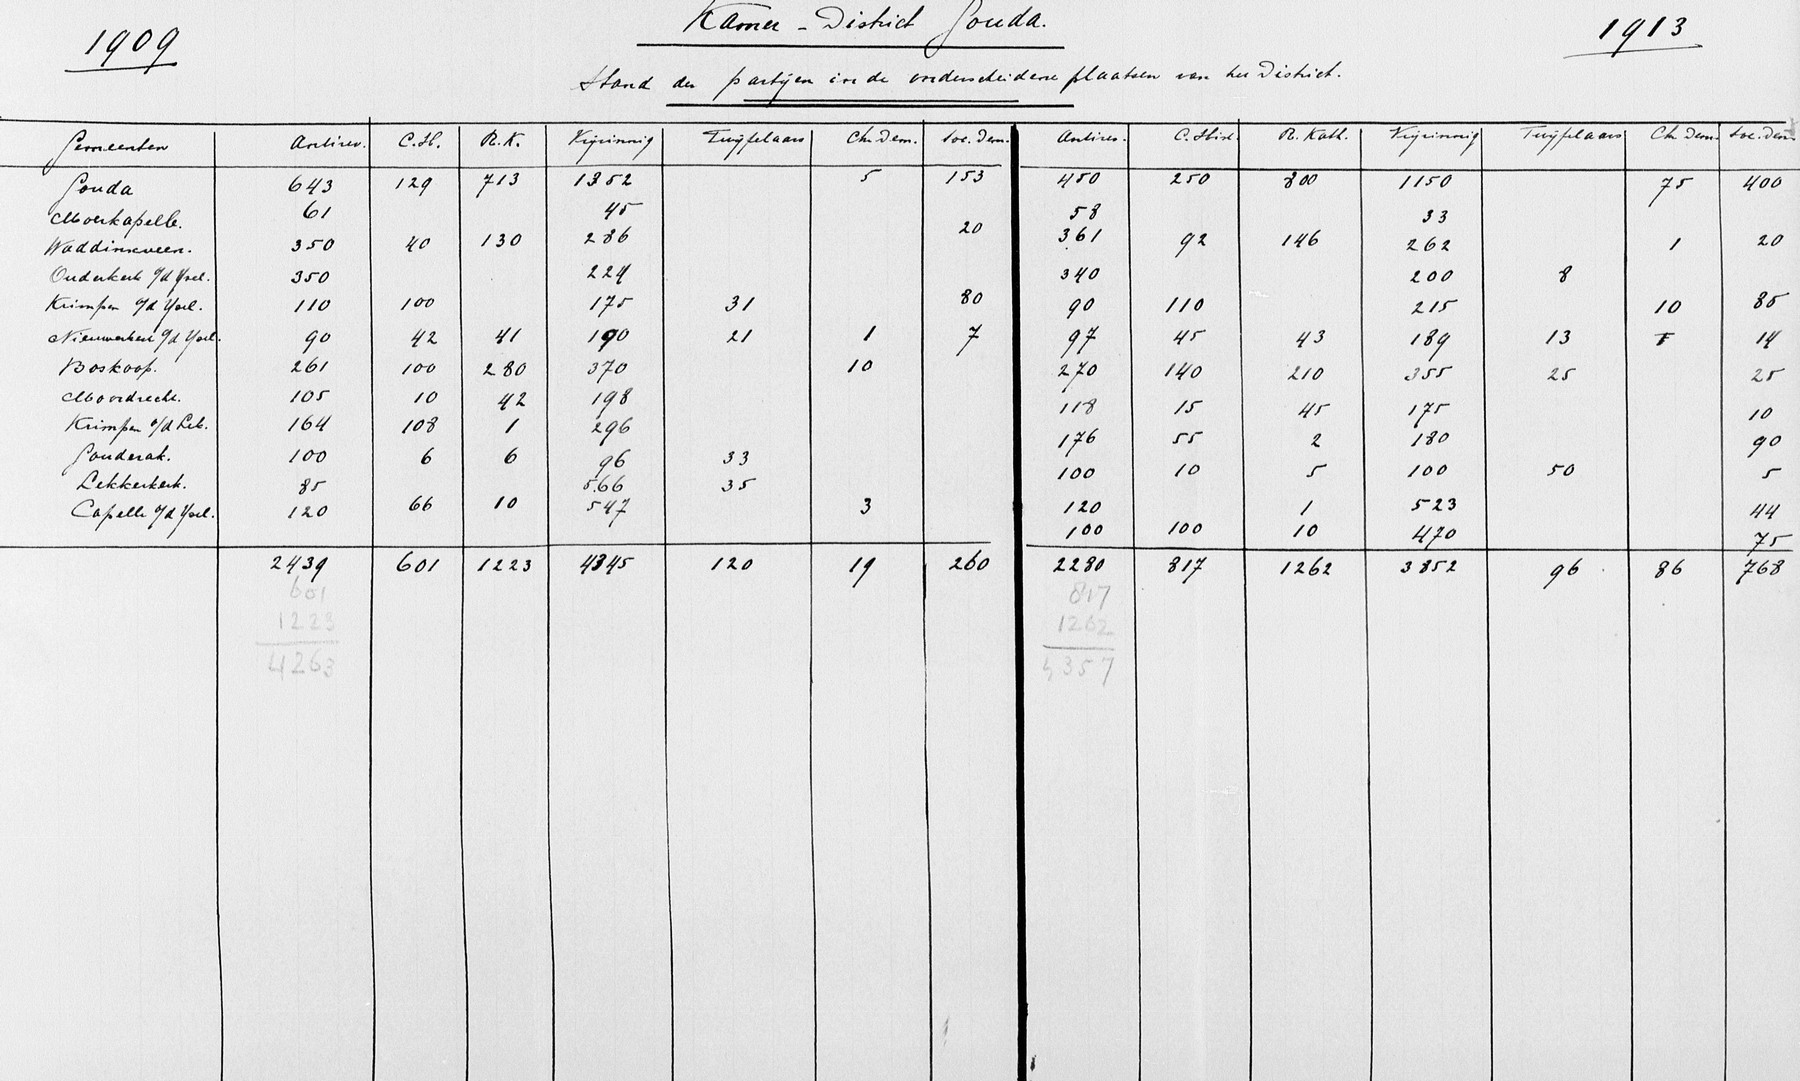 1909 Kamer-District Gouda. 1913
Stand der partijen in de onderscheidene plaatsen van het District.
Gemeenten Antirev. C.H. R.K. Vrijzinnig Twijfelaars Chr. Dem. Soc. Dem. Antirev. C. Hist. R. Kath. Vrijzinnig Twijfelaars Ch. Dem. Soc. Dem.
Gouda 643 129 713 1352 5 153 450 250 800 1150 75 400
Moerkapelle. 61 45 58 33
Waddinxveen. 350 40 130 286 20 361 92 146 262 1 20
Ouderkerk a/d Ysel. 350 224 340 200 8
Krimpen a/d Ysel. 110 100 175 31 80 90 110 215 10 85
Nieuwerkerk a/d Ysel. 90 42 41 190 21 1 7 97 45 43 189 13 14
Boskoop. 261 100 280 370 10 270 140 210 355 25 25
Moordrecht. 105 10 42 198 118 15 45 175 10
Krimpen a/d Lek. 164 108 1 296 176 55 2 180 90
Gouderak. 100 6 6 96 33 100 10 5 100 50 5
Lekkerkerk. 85 566 35 120 1 523 44
Capelle a/d Ysel. 120 66 10 547 3 100 100 10 470 75
2439 601 1223 4345 120 19 260 2280 817 1262 3852 96 86 768
601 817
1223 1262
4263 4357